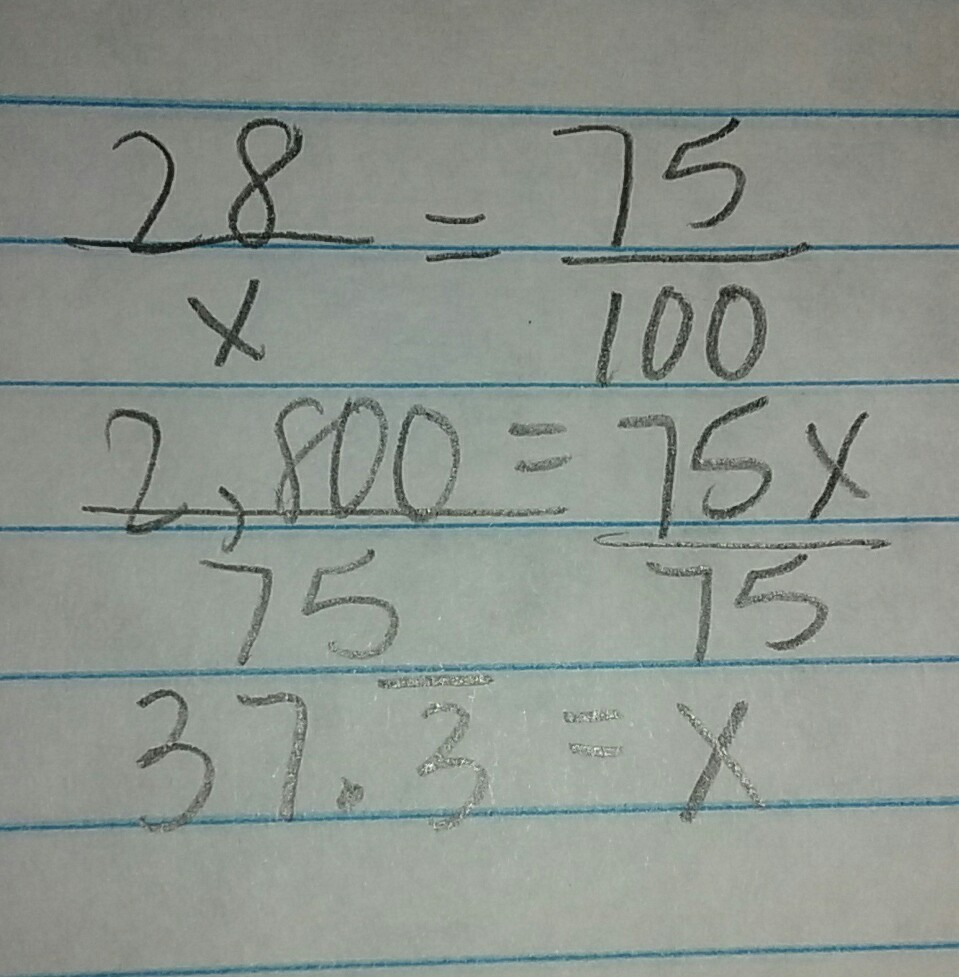 28/x = 75/100
2,800/75 = 75x/75
37.3̅ = x